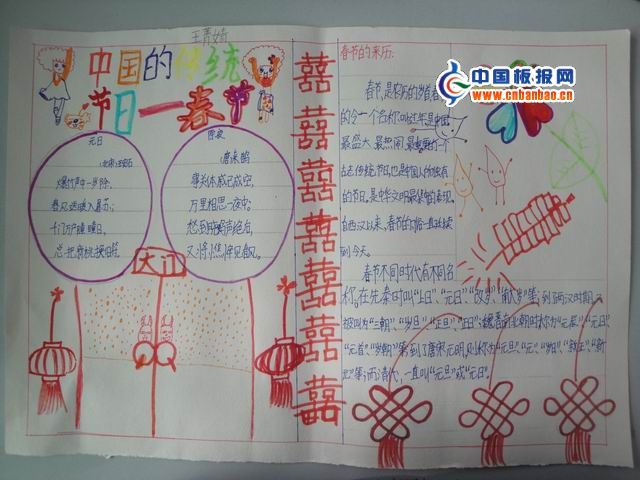 王青嫆
中国的传统
节日一春节
元日
(北宋)王安石
爆竹声中一岁除,
春风送暖入屠苏;
千门万户曈曈日,
总把新桃换旧符。
除夜
唐来鹄
事关休戚已成空,
万里相思一夜中。
愁到晓鸡声绝后,
又将憔悴见春风。
大门
囍
囍
囍
囍
囍
囍
囍
囍
春节的来历:
春节,是农历的岁首,春
节的另一个名称叫过年,是中国
最盛大、最热闹、最重要的一个
古老传统节日,也是中国人所独有
的节日。是中华文明最集中的表现。
自西汉以来,春节的习俗一直延续
到今天。
春节不同时代有不同名
称。在先秦时叫“上日”、“元日”、“改岁”、“献岁”等;到了两汉时期,又
被叫为“三朝”、“岁旦”、“正旦”、“正日”;魏晋南北朝时称为“元辰”、“元日”
“元首”、“岁朝”等;到了唐宋元明,则称为“元旦”、“元”、“岁日”、“新正”、“新
元”等;而清代,一直叫“元旦”或“元日”。
中国板报网
www.cnbanbao.cn